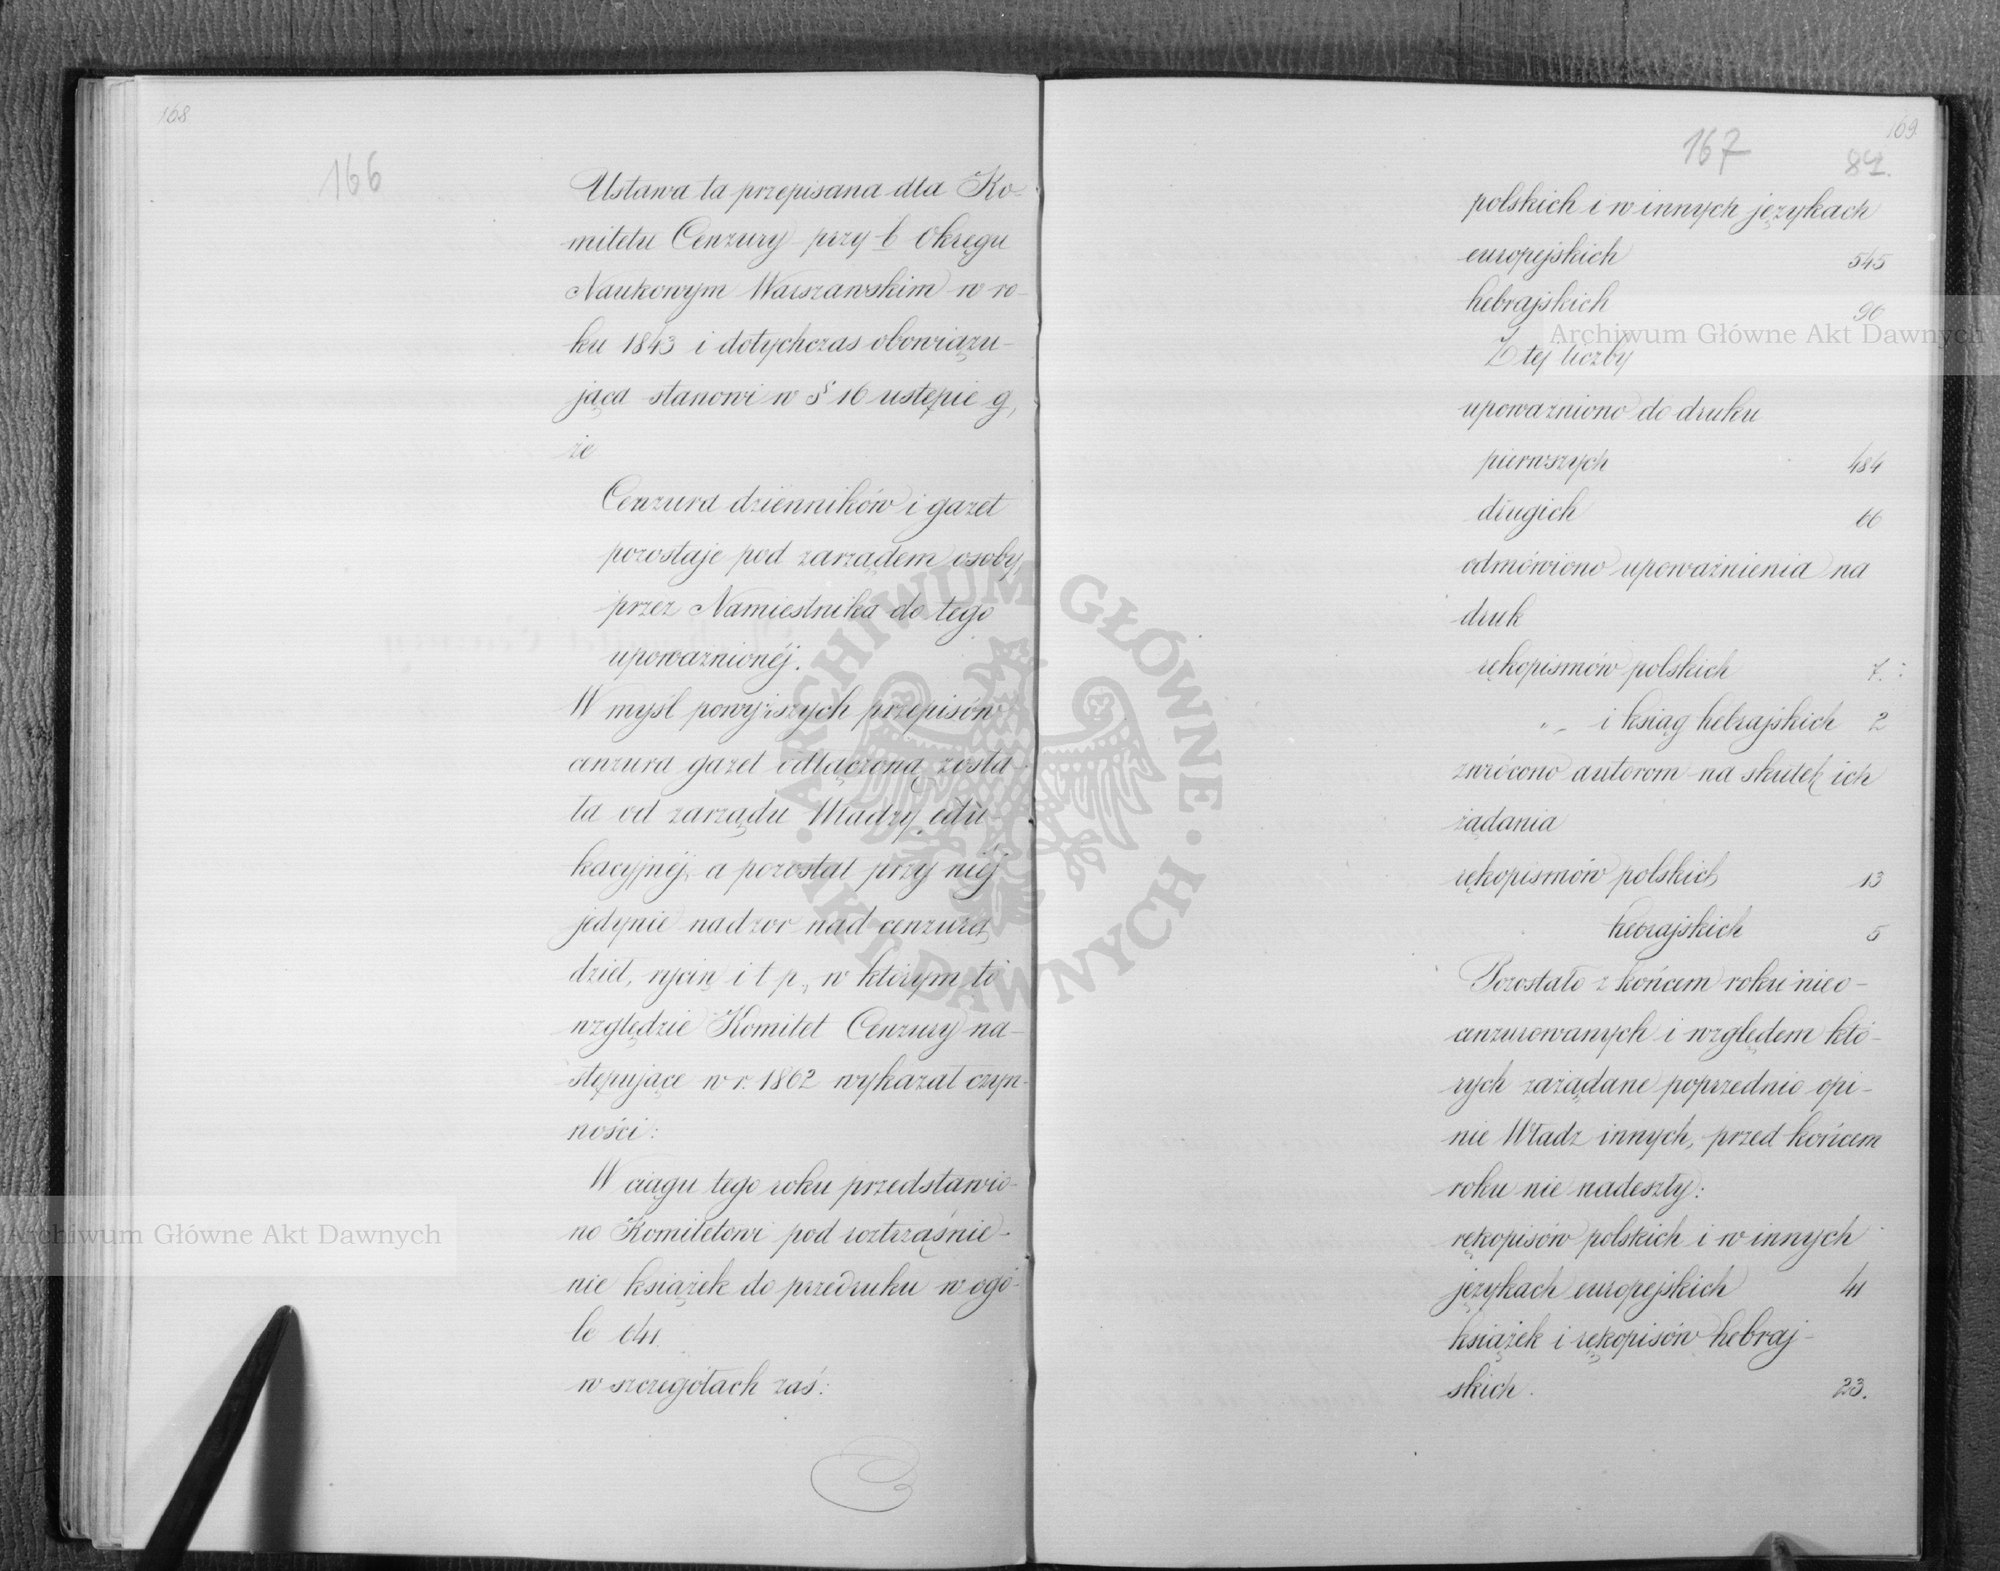 108
166
Ustawa ta przepisana dla Ko-
mitetu Cenzury przy b Okręgu
Naukowym Warszawskim w ro-
ku 1843 i dotychczas obowiązu-
jąca stanowi w § 16 ustępie g,
że
Cenzura dzienników i gazet
pozostaje pod zarządem osoby,
przez Namiestnika do tego
upoważnionéj.
W myśl powyższych przepisów
cenzura gazet odłączoną zosta-
ła od zarządu Władzy edu-
kacyjnéj, a pozostał przy niéj
jedynie nadzor nad cenzurą
dzieł, rycin i t p., w którym to
względzie Komitet Cenzury na-
stępujące w r. 1862 wykazał czyn-
ności:
W ciągu tego roku przedstawio-
no Komitetowi pod roztrząśnie-
nie książek do przedruku w ogó-
le 641.
w szczegółach zaś:
169
167
84.
polskich i w innych językach
europejskich 545
hebrajskich 96
Z tej liczby
upoważniono do druku
pierwszych 484
drugich 66
odmówiono upoważnienia na
druk
rękopismów polskich 7.
" - i ksiąg hebrajskich 2
zwrócono autorom na skutek ich
żądania
rękopismów polskich 13
hebrajskich 5
Pozostało z końcem roku nieo-
cenzurowanych i względem któ-
rych zażądane poprzednio opi-
nie Władz innych, przed końcem
roku nie nadeszły:
rękopisów polskich i w innych
językach europejskich 41
książek i rękopisów hebraj-
skich. 23.
Archiwum Główne Akt Dawnych
Archiwum Główne Akt Dawnych
ARCHIWUM GŁÓWNE · AKT DAWNYCH ·